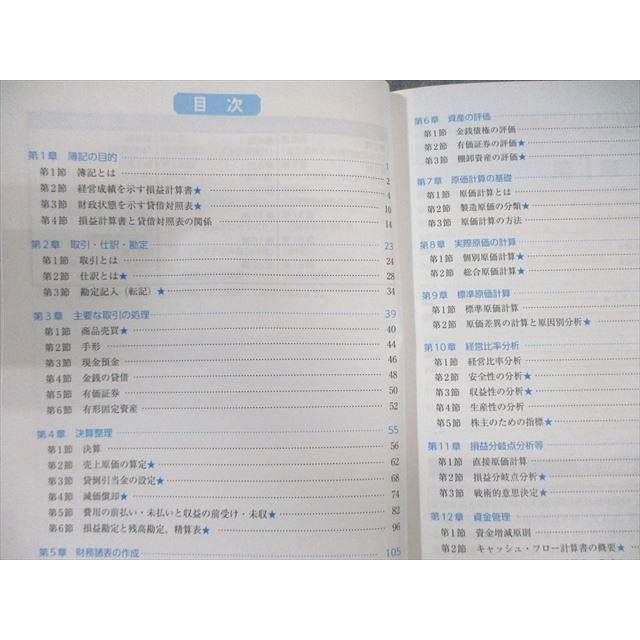 目次
第1章 簿記の目的 1
第1節 簿記とは 2
第2節 経営成績を示す損益計算書★ 4
第3節 財政状態を示す貸借対照表★ 10
第4節 損益計算書と貸借対照表の関係 14
第2章 取引・仕訳・勘定 23
第1節 取引とは 24
第2節 仕訳とは★ 28
第3節 勘定記入（転記）★ 34
第3章 主要な取引の処理 39
第1節 商品売買★ 40
第2節 手形 44
第3節 現金預金 46
第4節 金銭の貸借 48
第5節 有価証券 50
第6節 有形固定資産 52
第4章 決算整理 55
第1節 決算 56
第2節 売上原価の算定★ 62
第3節 貸倒引当金の設定★ 68
第4節 減価償却★ 74
第5節 費用の前払い・未払いと収益の前受け・未収★ 82
第6節 損益勘定と残高勘定、精算表★ 96
第5章 財務諸表の作成 105
第6章 資産の評価
第1節 金銭債権の評価
第2節 有価証券の評価★
第3節 棚卸資産の評価★
第7章 原価計算の基礎
第1節 原価計算とは
第2節 製造原価の分類★
第3節 原価計算の方法
第8章 実際原価の計算
第1節 個別原価計算★
第2節 総合原価計算★
第9章 標準原価計算
第1節 標準原価計算
第2節 原価差異の計算と原因別分析★
第10章 経営比率分析
第1節 経営比率分析
第2節 安全性の分析★
第3節 収益性の分析★
第4節 生産性の分析
第5節 株主のための指標★
第11章 損益分岐点分析等
第1節 直接原価計算
第2節 損益分岐点分析★
第3節 戦術的意思決定★
第12章 資金管理
第1節 資金増減原則
第2節 キャッシュ・フロー計算書の概要★